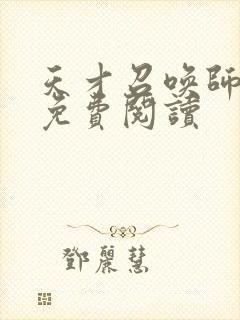 天才召喚師
免費閱讀
鄧麗慧